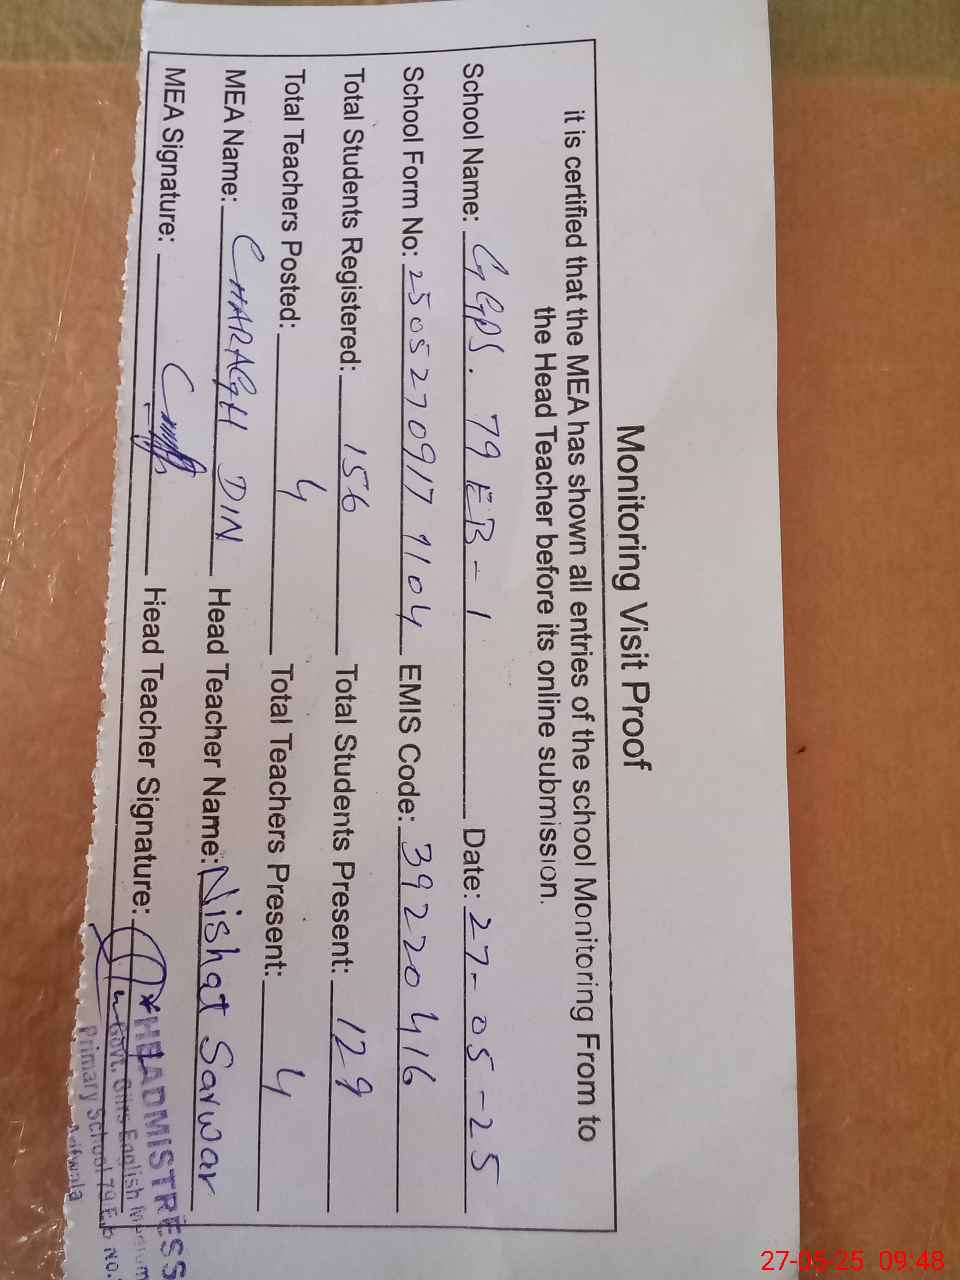 Monitoring Visit Proof
it is certified that the MEA has shown all entries of the school Monitoring From to
the Head Teacher before its online submission.
School Name: GGPS. 79 EB-1 Date: 27-05-25
School Form No: 2505270917 1104 EMIS Code: 39220416
Total Students Registered: 156 Total Students Present: 129
Total Teachers Posted: 4 Total Teachers Present: 4
MEA Name: CHARAGH DIN Head Teacher Name: Nishat Sarwar
MEA Signature: Head Teacher Signature:
HEADMISTRESS
Govt. Girls English Medium
Primary School 79 E.b No.
Arifwala
27-05-25 09:48